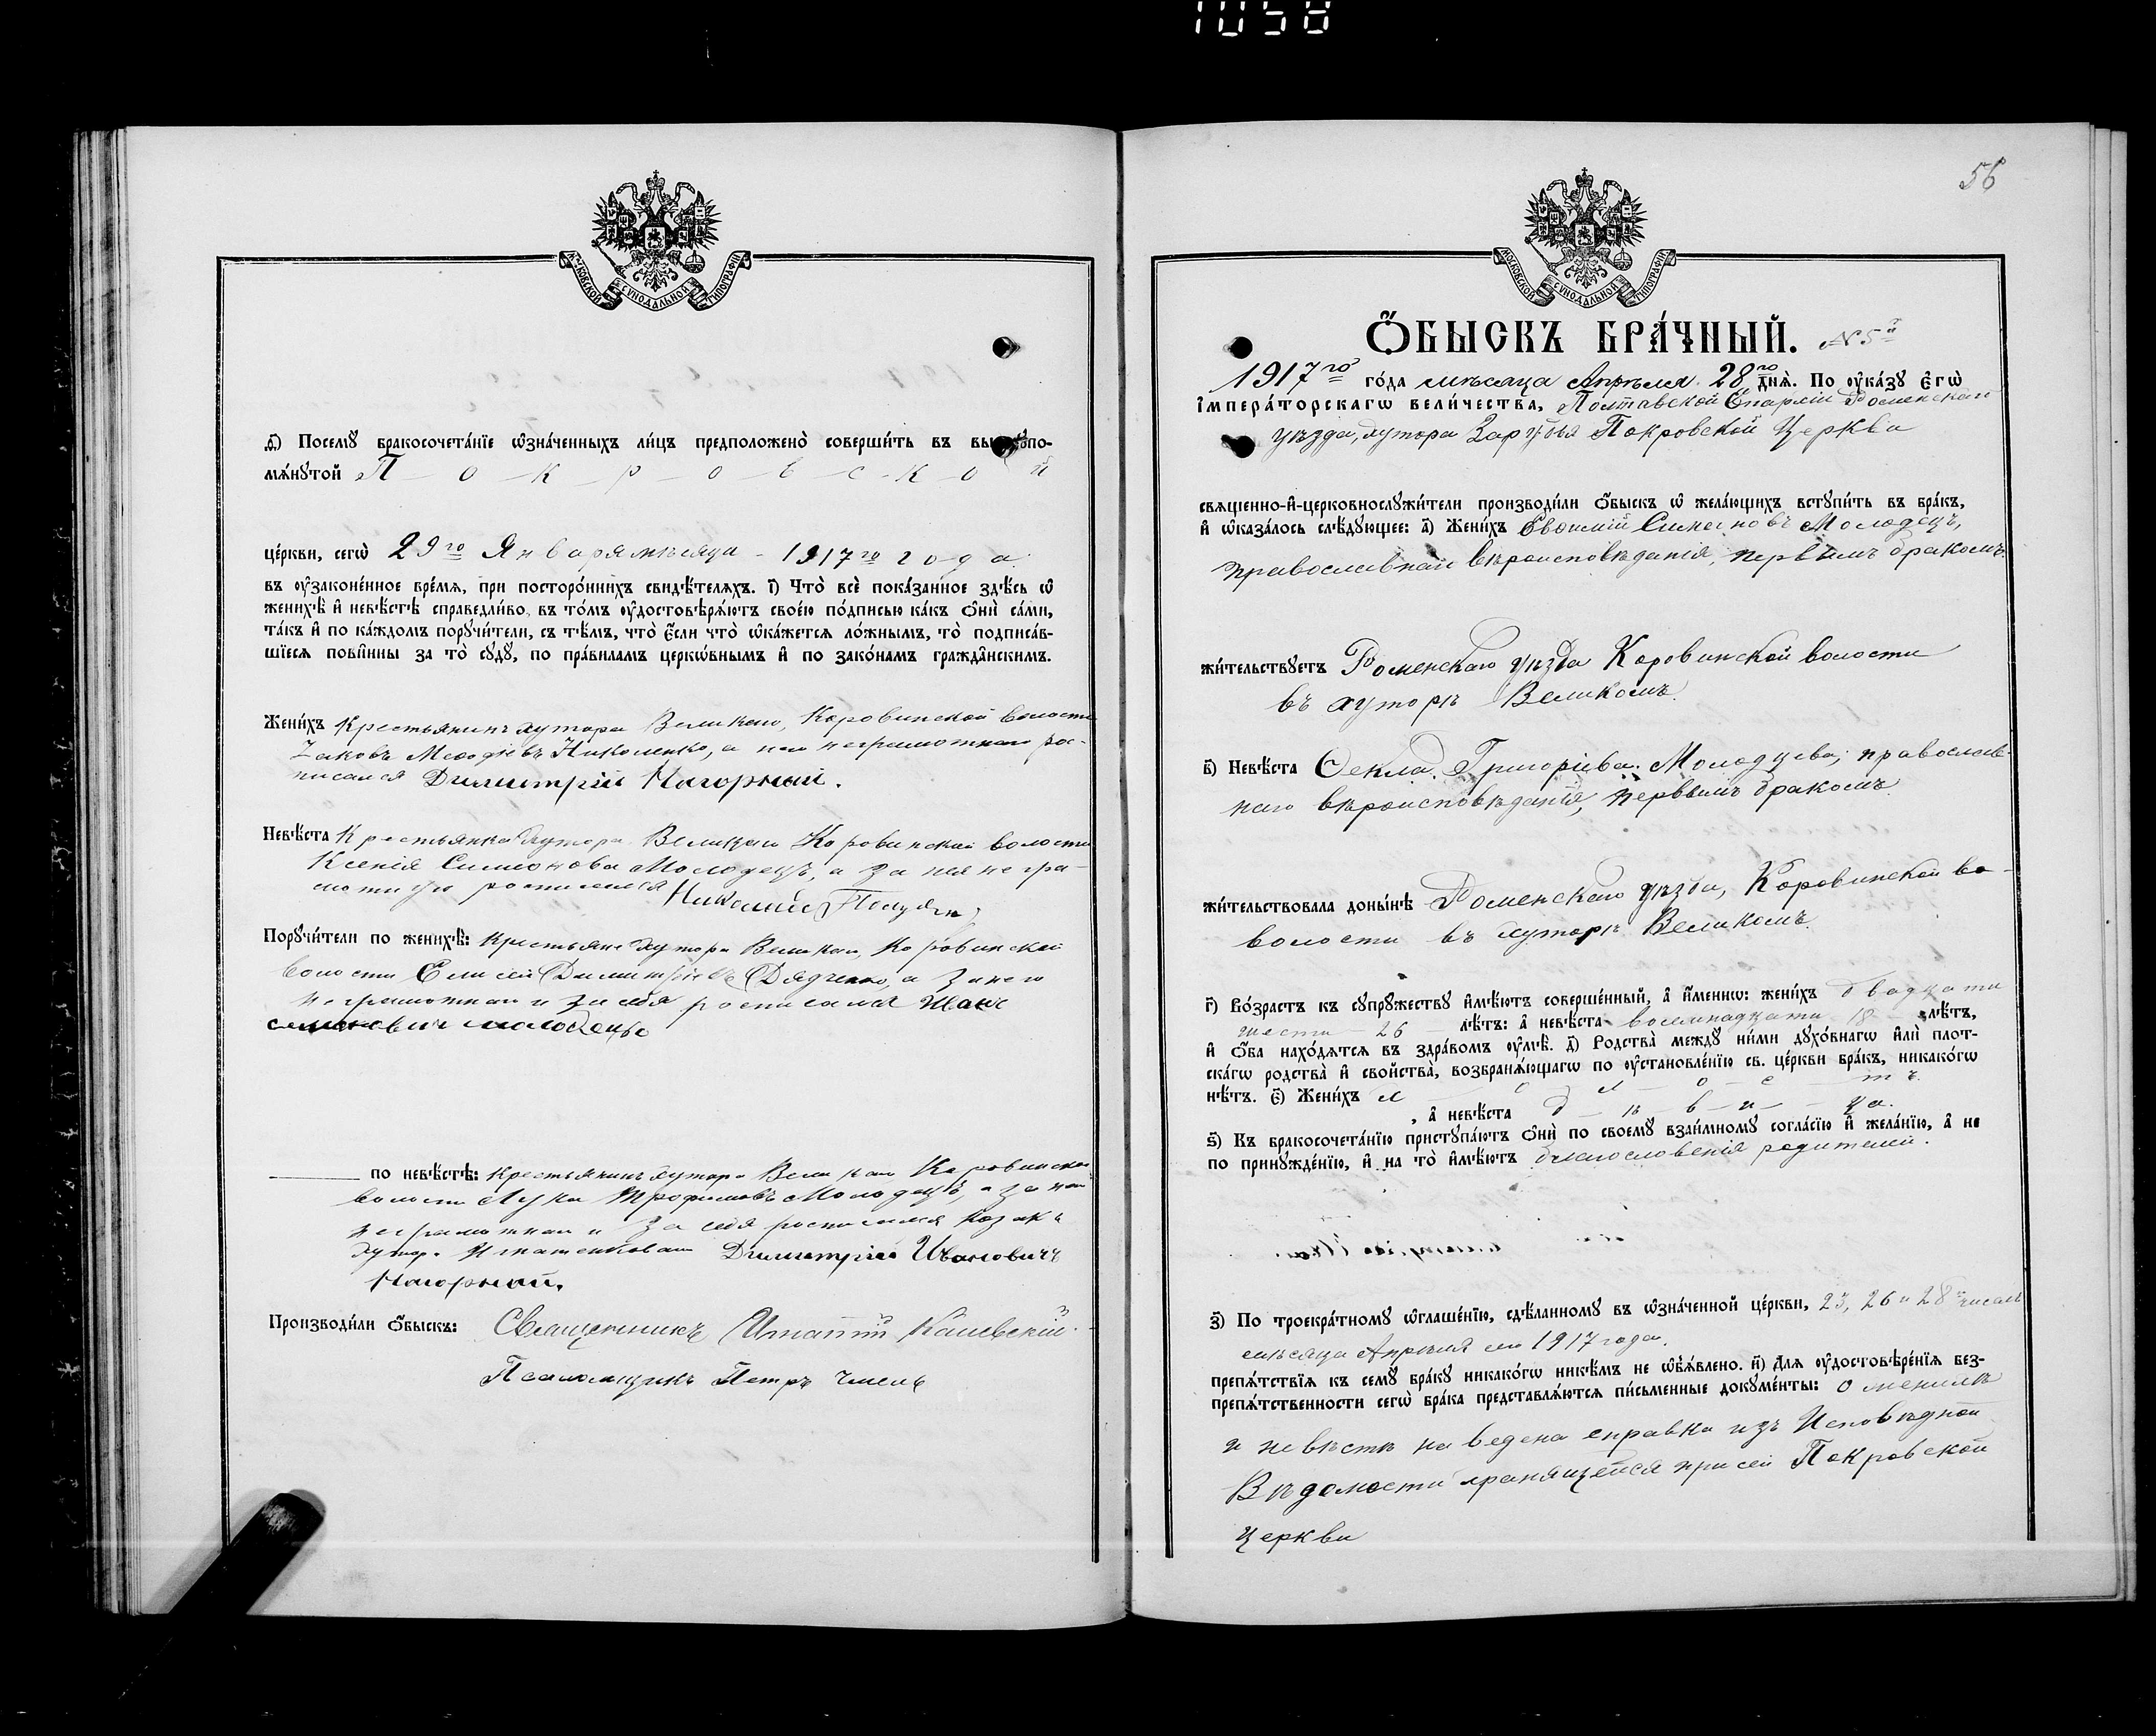 1058
МОСКОВСКОЙ СѴНОДАЛЬНОЙ ТИПОГРАФІИ
д҃і) Посемꙋ бракосочета́нїе ѡ҆зна́ченныхъ ли́цъ предположено̀ соверши́ть въ
мѧ́нꙋтой П – о – к – р – о – в – с – к – о й
це́ркви, сегѡ̀ 29го Января мѣсяца – 1917го года.
въ ᲂу҆зако́не́нное вре́мѧ, при посторо́ннихъ свидѣ́телѧхъ. і҃) Что̀ всѐ пока́занное здѣ́сь ѡ҆
женихѣ̀ и҆ невѣ́стѣ справедли́во, въ то́мъ ᲂу҆достовѣрѧ́ютъ свое́ю по́дписью ка́къ ѻ҆нѝ са́ми,
та́къ и҆ по ка́ждомъ порꙋчи́тели, съ тѣ́мъ, что̀ є҆́сли что̀ ѡ҆ка́жетсѧ ло́жнымъ, то̀ подписа́в-
шїесѧ пови́нны за то̀ сꙋдꙋ̀, по пра́виламъ церкѡ́внымъ и҆ по зако́намъ гражда́нскимъ.
Жени́хъ Крестьянинъ хутора Великаго, Коровинской волости
Іаковъ Николенко, а неграмотнаго рос-
писался Димитрій Нагорный.
Невѣ́ста Крестьянка хутора Великаго Коровинской волости
Ксенія Симеонова Молодецъ, а за нея негра-
мотную росписался Николай
Порꙋчи́тели по женихѣ̀: Крестьяне хутора Великаго, Коровинской
волости Елисей Димитріевъ Дядченко, а за него
неграмотнаго и за себя росписался Иванъ
семеновичъ молодецъ
по невѣ́стѣ: Крестьянинъ хутора Великаго Коровинской
волости Лука Трофимовъ Молодецъ, а за него
неграмотнаго и за себя росписался козакъ
хутора Димитрій Ивановичъ
Нагорный.
Производи́ли ѻ҆́быскъ: Священникъ Игнатій
Псаломщикъ Петръ
56
МОСКОВСКОЙ СѴНОДАЛЬНОЙ ТИПОГРАФІИ
Ѻ҆́БЫСКЪ БРА́ЧНЫЙ. № 5й
1917го го́да мѣсяца Апрѣля 28го днѧ̀. По ᲂу҆ка́зꙋ є҆гѡ̀
і҆мпера́торскагѡ вели́чества, Полтавской Епархіи Роменскаго
уѣзда, хутора Зарубья Покровской Церкви
свѧщенно-и҆-церковнослꙋжи́тели производи́ли ѻ҆́быскъ ѡ҆ жела́ющихъ встꙋпи́ть въ бра́къ,
и҆ ѡ҆каза́лось слѣ́дꙋющее: а҃) Жени́хъ Евфимій Симеоновъ Молодецъ,
православнаго вѣроисповѣданія, первымъ бракомъ.
жи́тельствꙋетъ Роменскаго уѣзда Коровинской волости
въ хуторѣ Великомъ.
в҃) Невѣ́ста Ѳекла Григоріева Молодцева, православ-
наго вѣроисповѣданія, первымъ бракомъ.
жи́тельствовала доны́нѣ Роменскаго уѣзда, Коровинской во-
волости въ хуторѣ Великомъ.
г҃) Во́зрастъ къ сꙋпрꙋ́жествꙋ и҆мѣ́ютъ соверше́нный, а҆ и҆́менню: жени́хъ двадцати
шести – 26 – лѣ́тъ: а҆ невѣ́ста восемнадцати 18 – лѣ́тъ,
и҆ ѻ҆́ба нахо́дѧтсѧ въ здра́вомъ ᲂу҆мѣ̀. д҃) Родства̀ междꙋ̀ ни́ми дꙋхо́внагѡ и҆лѝ плот-
ска́гѡ родства̀ и҆ свойства̀, возбранѧ́ющагѡ по ᲂу҆становле́нїю св. це́ркви бра́къ, никако́гѡ
нѣ́тъ. є҃) Жени́хъ х – о – л – о – с – т ъ.
, а҆ невѣ́ста д – ѣ – в – и – ца.
ѕ҃) Къ бракосочета́нїю пристꙋпа́ютъ ѻ҆нѝ по своемꙋ̀ взаи́мномꙋ согла́сїю и҆ жела́нїю, а҆ не
по принꙋжде́нїю, и҆ на то̀ и҆мѣ́ютъ благословенія родителей.
з҃) По троекра́тномꙋ ѡ҆глаше́нїю, сдѣ́ланномꙋ въ ѡ҆зна́ченной це́ркви, 23, 26 и 28 числъ
мѣсяца Апрѣля 1917 года.
препѧ́тствїѧ къ семꙋ̀ бра́кꙋ никако́гѡ никѣ́мъ не ѡ҆б̾ѧ́влено. и҃) Длѧ ᲂу҆достовѣре́нїѧ без-
препѧ́тственности сегѡ̀ бра́ка представлѧ́ютсѧ пи́сьменные докꙋме́нты: о женихѣ
и невѣстѣ наведена справка изъ Исповѣдной
Вѣдомости хранящейся при сей Покровской
церкви